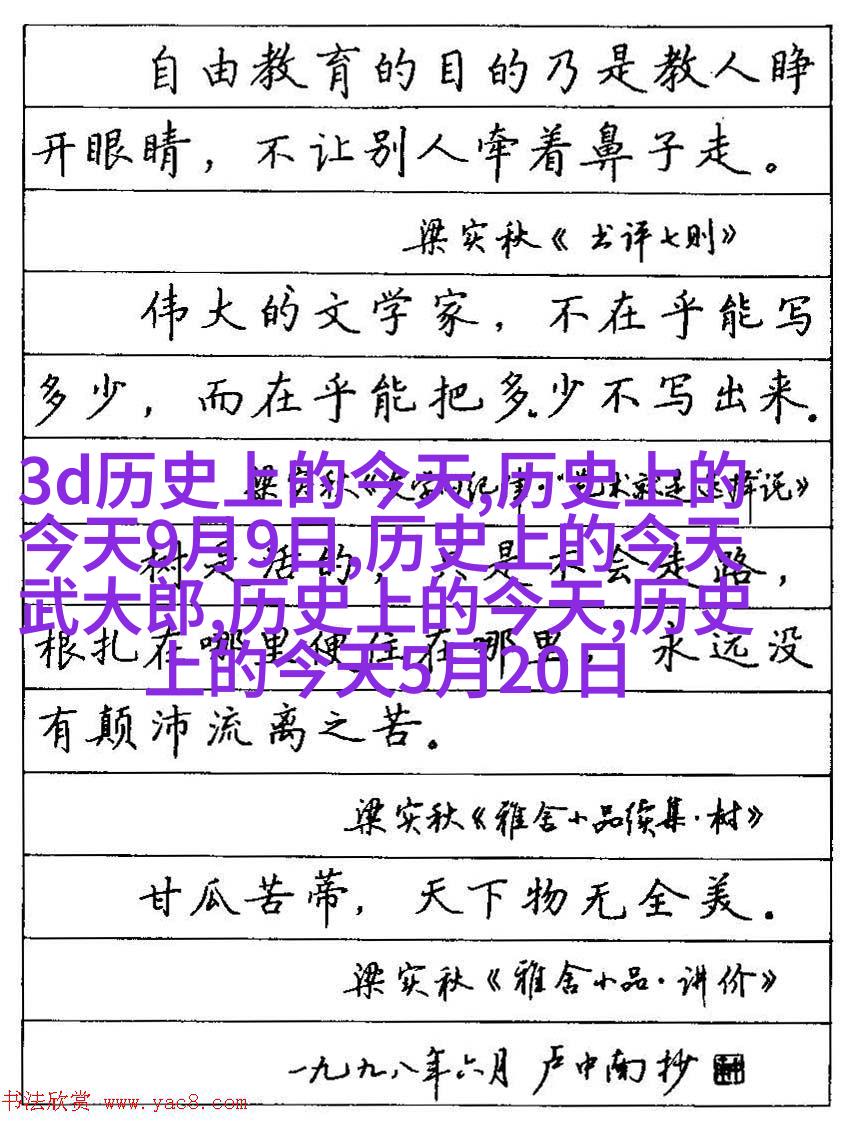 自由教育的目的乃是教人睁
开眼睛，不让别人牵着鼻子走。
梁实秋《书评七则》
伟大的文学家，不在乎能写
多少，而在乎能把多少不写出来。
3d历史上的今天,历史上的
梁实秋《文学的纪律·“艺术就是选择”说》
今天9月9日,历史上的今天
树是活的，只是不会走路，
武大郎,历史上的今天,历史
根扎在哪里便住在哪里，永远没
上的今天5月20日
有颠沛流离之苦。
梁实秋《雅舍小品续集·树》
甘瓜苦蒂，天下物无全美。
梁实秋《雅舍小品·讲价》
一九九八年六月 卢中南抄
书法欣赏 www.yac8.com